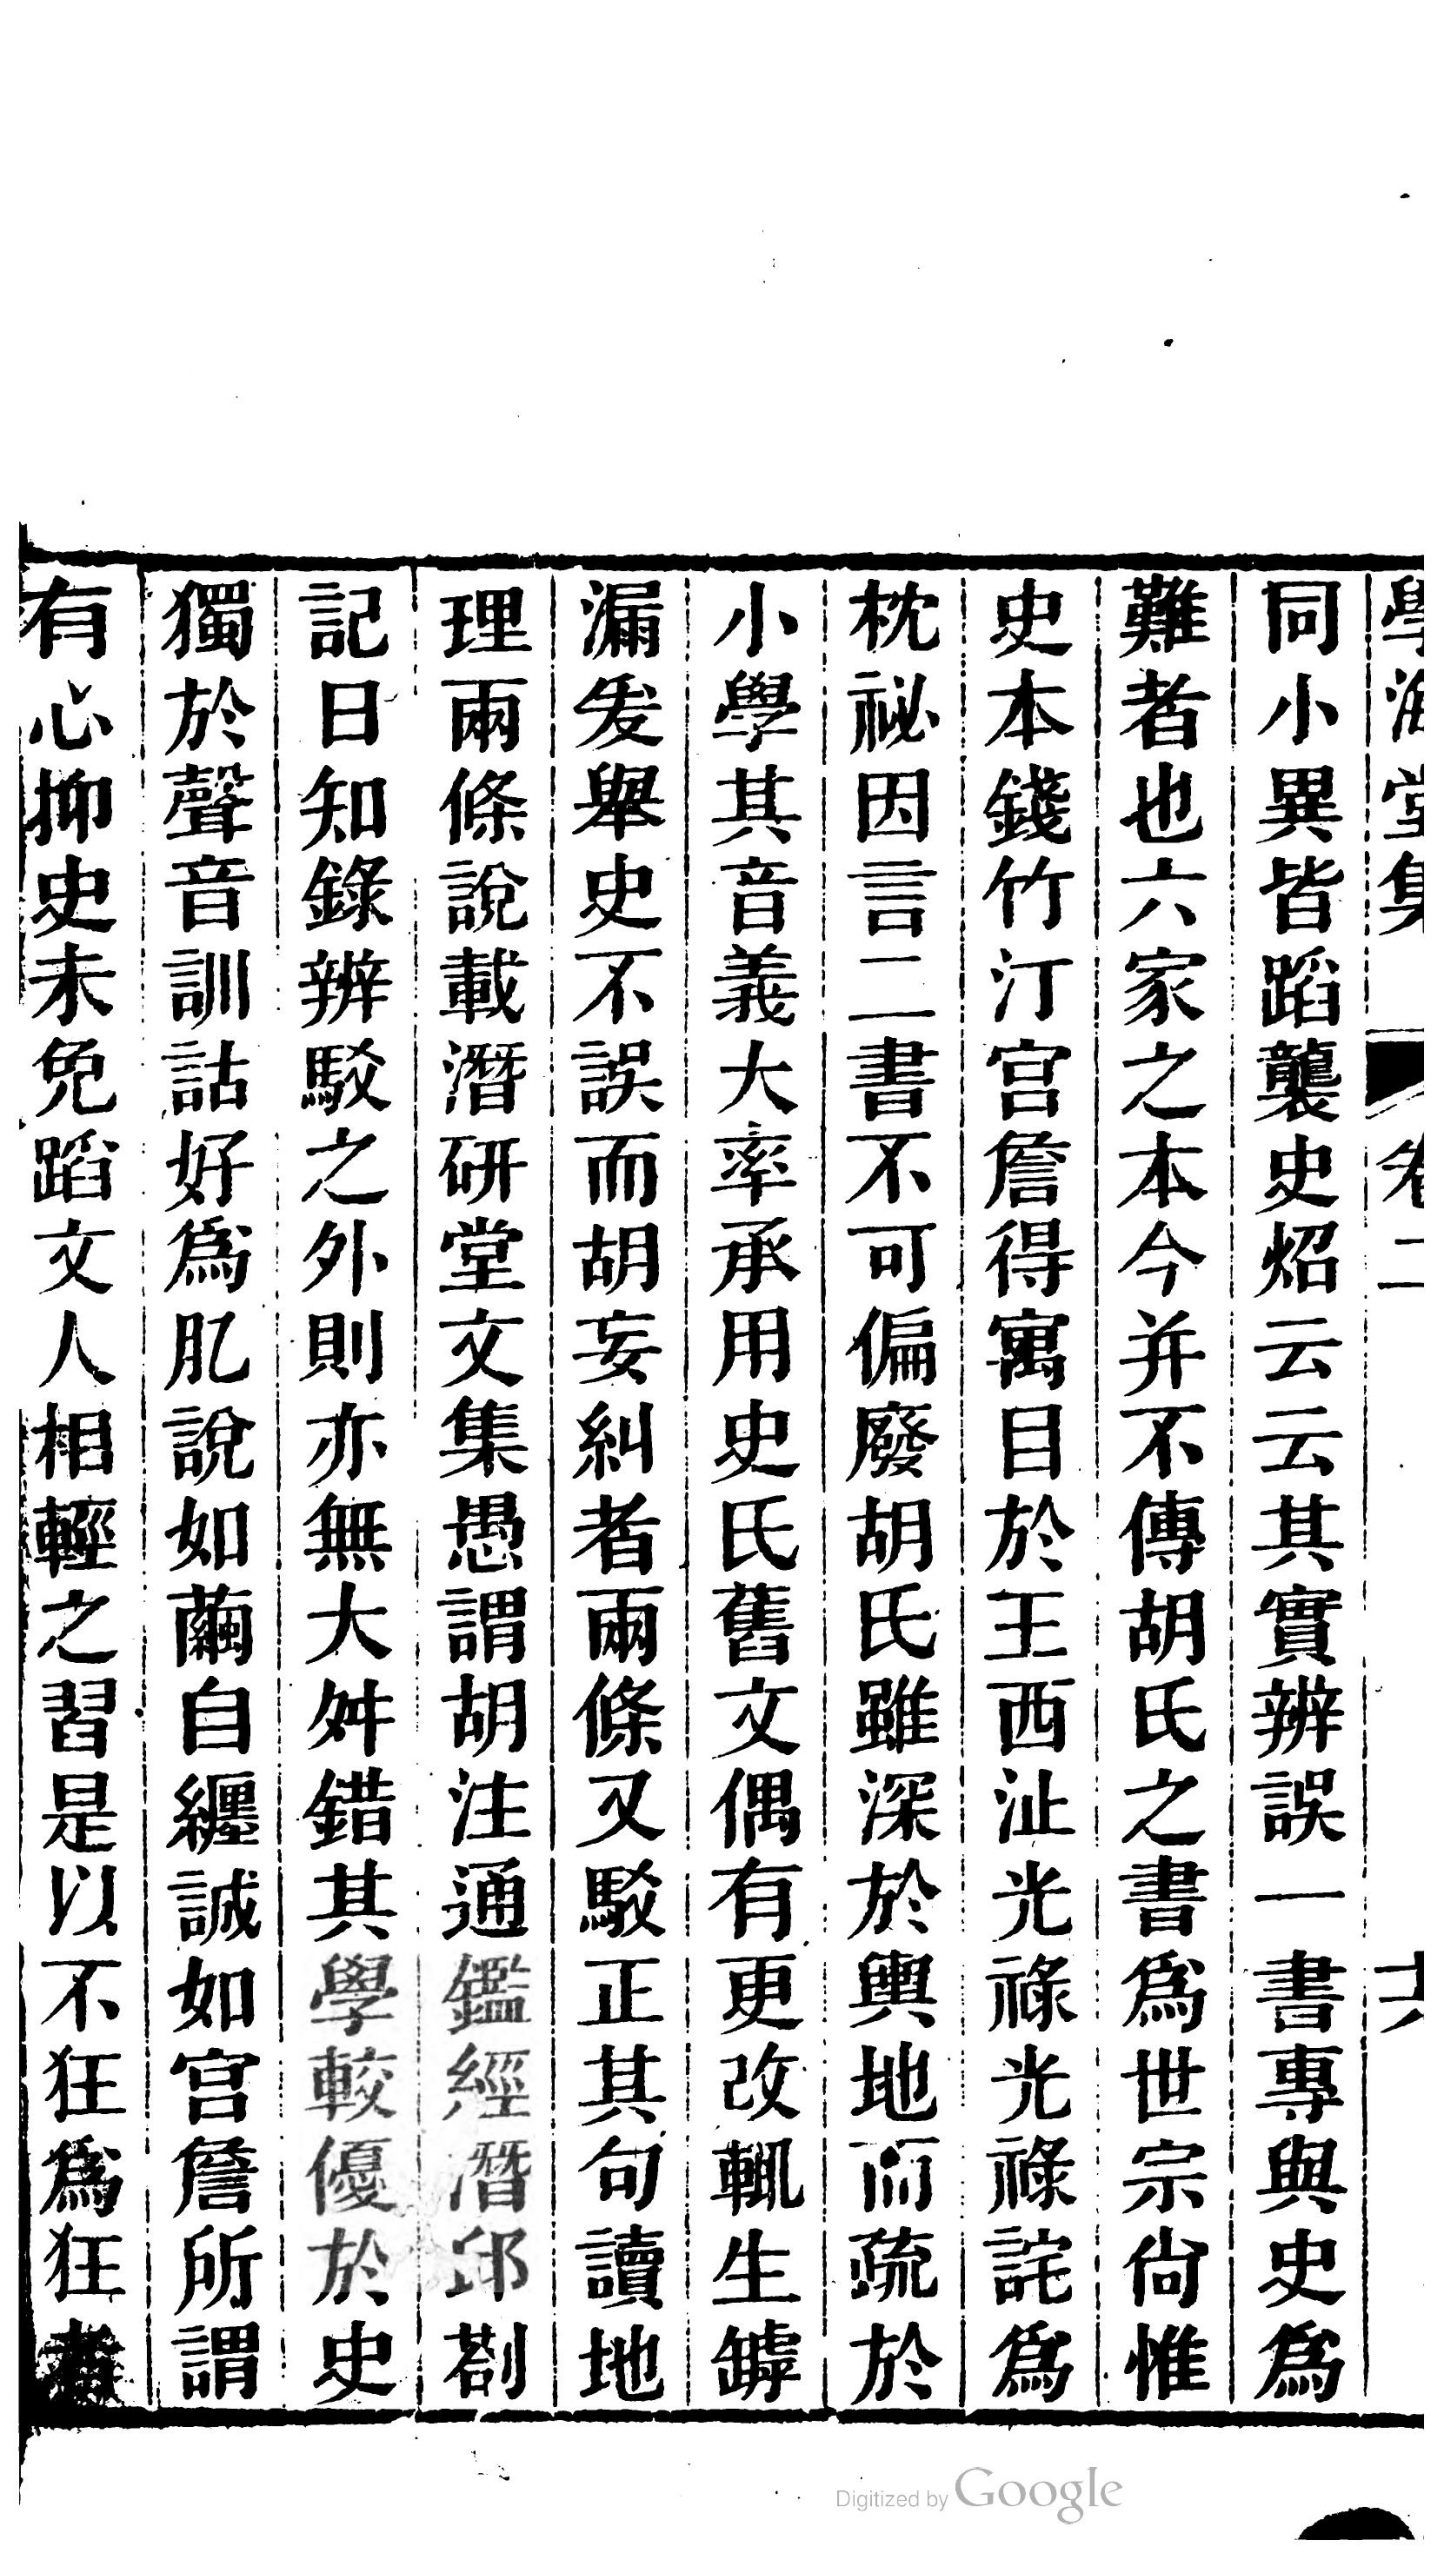 學海堂集 卷二 十六
同小異皆蹈襲史炤云云其實辨誤一書專與史爲
難者也六家之本今并不傳胡氏之書爲世宗尙惟
史本錢竹汀宫詹得寓目於王西沚光祿光祿詫爲
枕祕因言二書不可偏廢胡氏雖深於輿地而疏於
小學其音義大率承用史氏舊文偶有更改輒生罅
漏爰舉史不誤而胡妄糾者兩條又駁正其句讀地
理兩條說載潛研堂文集愚謂胡注通鑑經潛邱劄
記日知錄辨駁之外則亦無大舛錯其學較優於史
獨於聲音訓詁好爲肊說如繭自纏誠如宫詹所謂
有心抑史未免蹈文人相輕之習是以不狂爲狂者
Digitized by Google